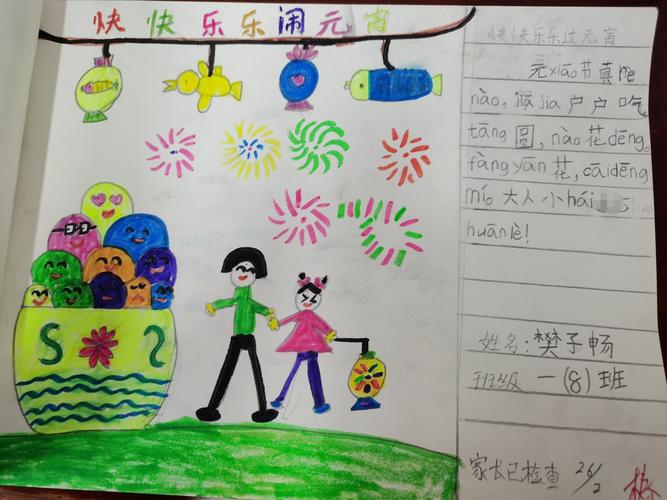 快快乐乐闹元宵
快快乐乐过元宵
元xiāo节真rè
nào,家jiā户户吃
tāng圆,nào花dēng。
fàngyān花,cāidēng
mí。大人小hái
huānlè!
姓名:樊子畅
班级 一(8)班
家长已检查 26/2